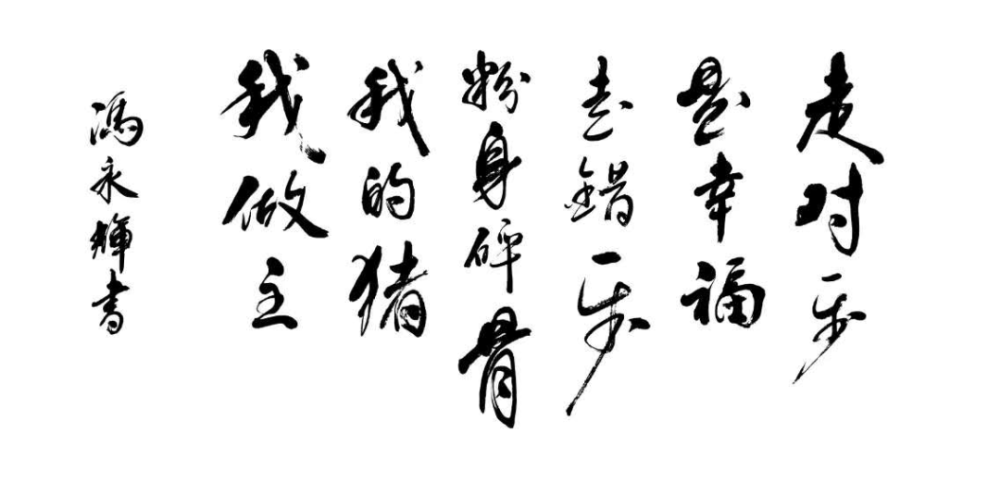 走对一步
是幸福
走错一步
粉身碎骨
我的猪
我做主
馮永輝书